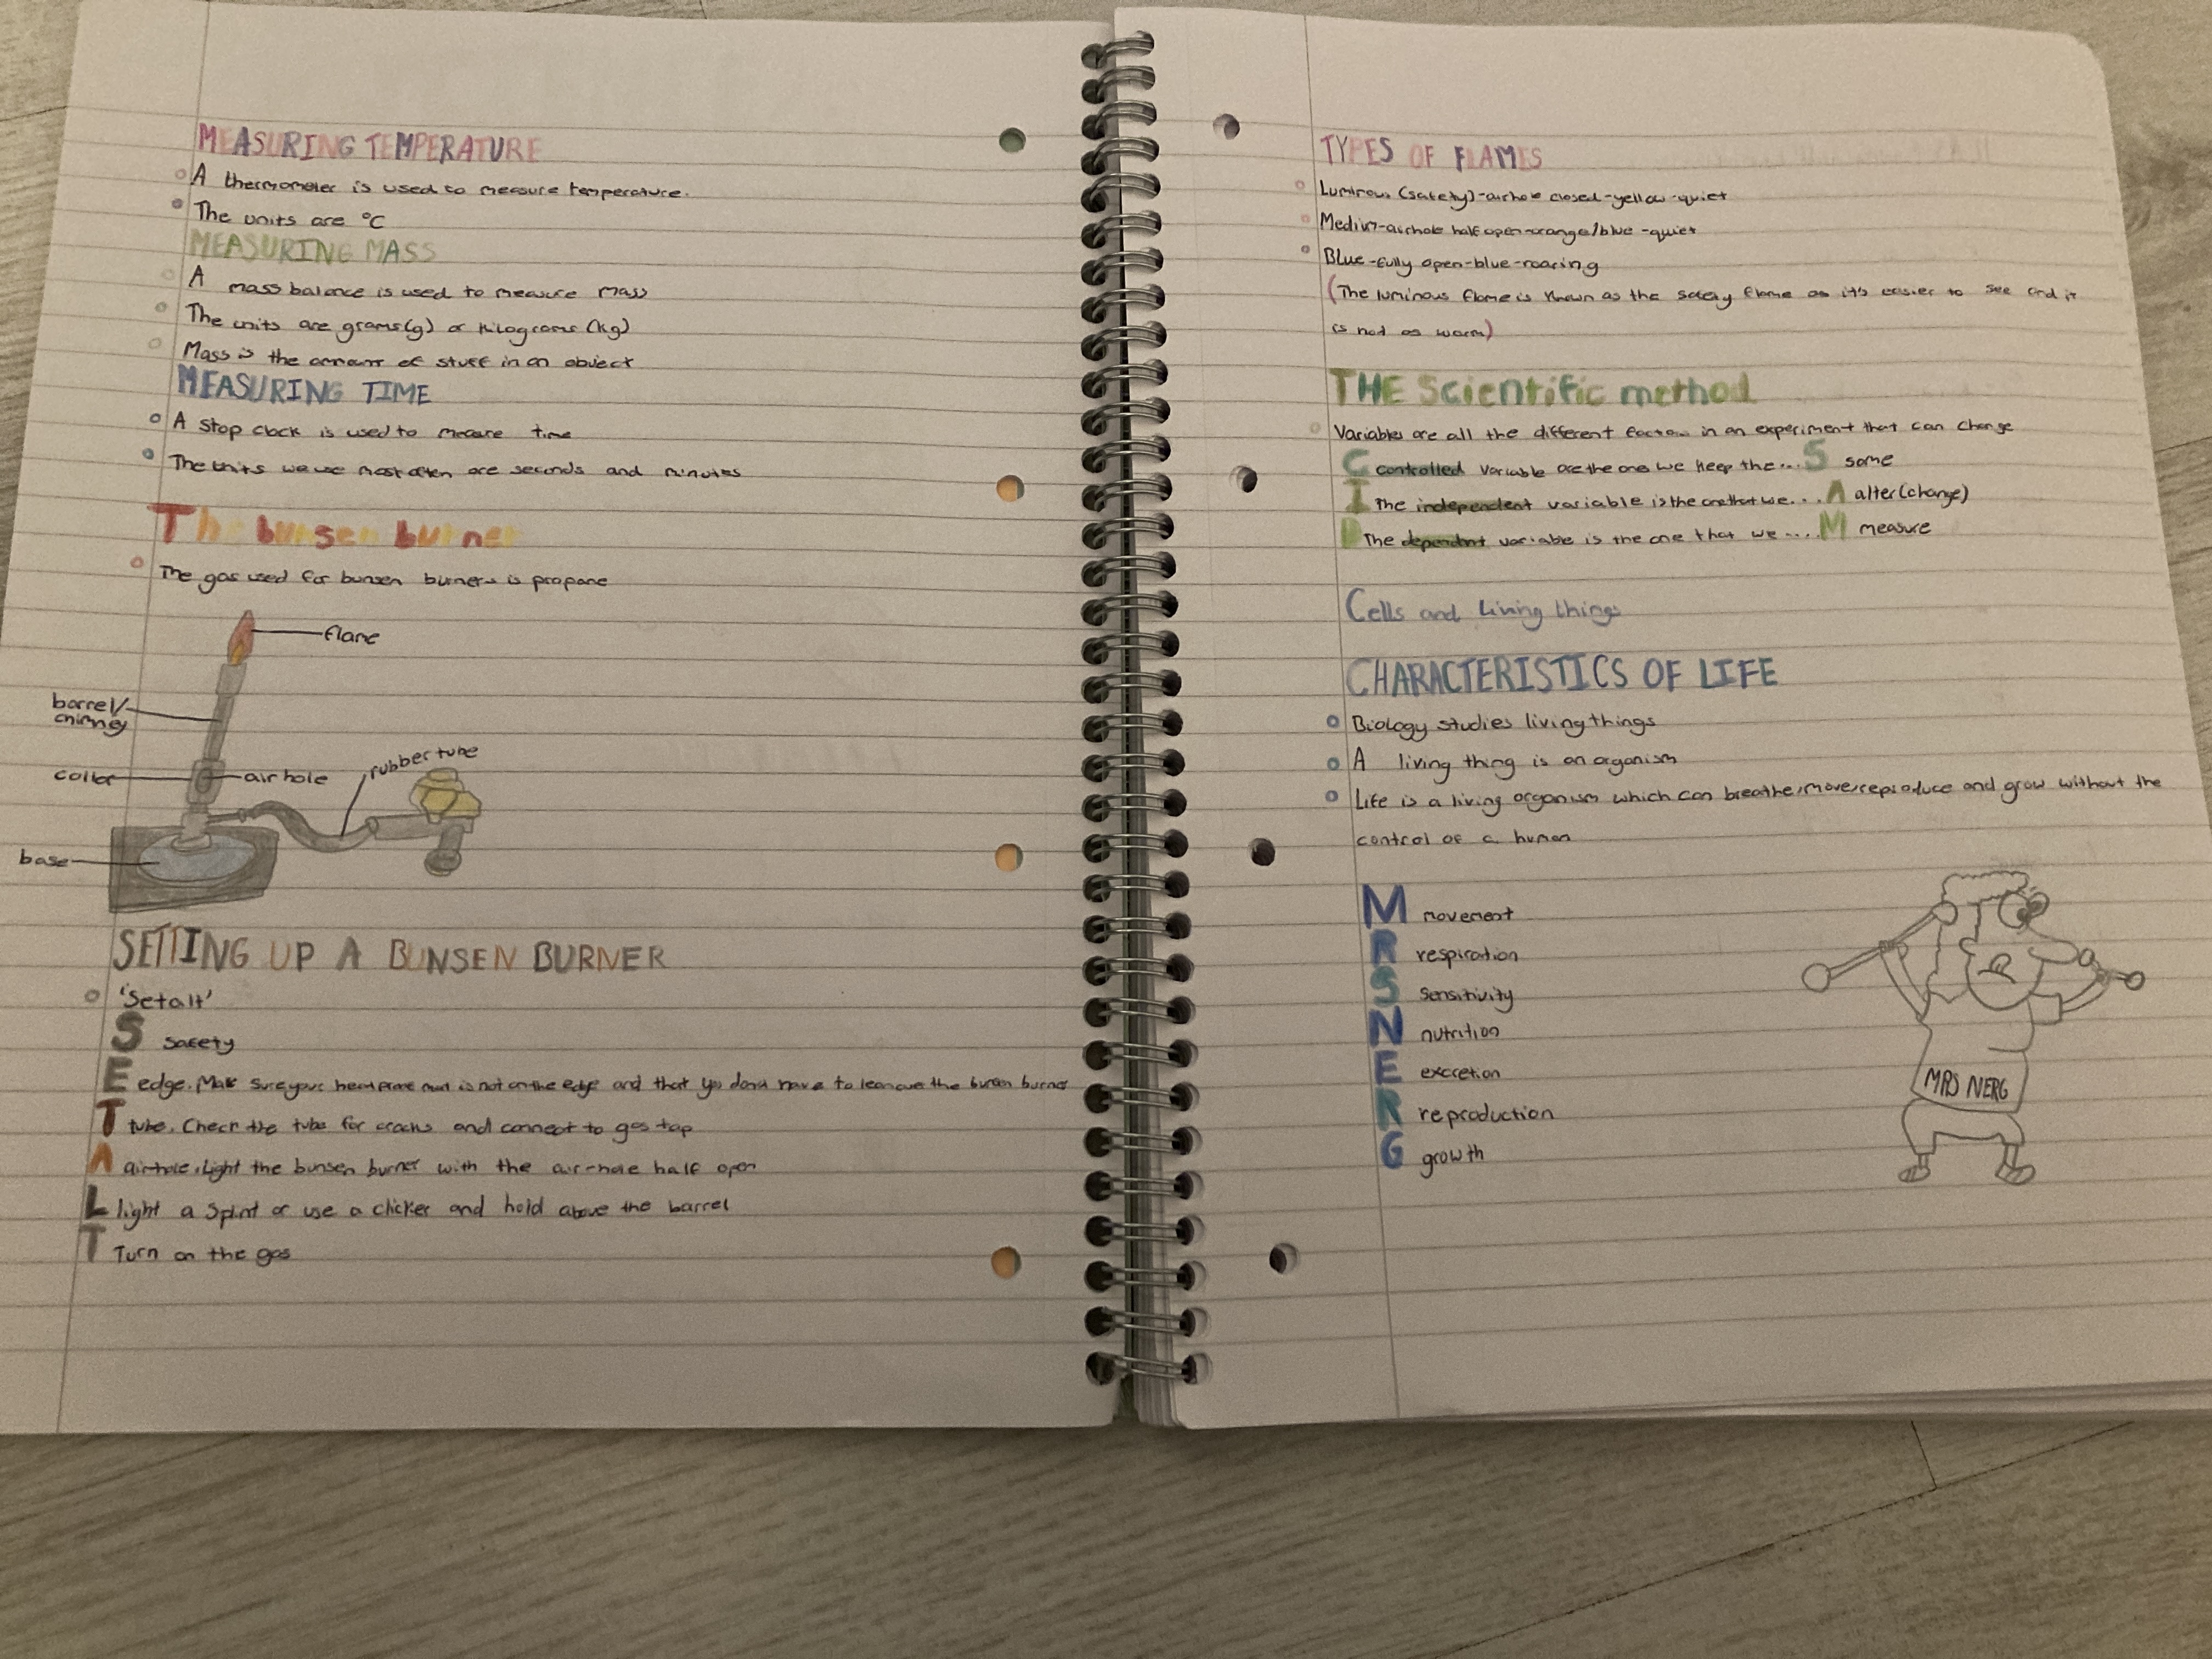 MEASURING TEMPERATURE
A thermometer is used to measure temperature.
The units are °C
MEASURING MASS
A mass balance is used to measure mass
The units are grams(g) or kilograms (kg)
Mass is the amount of stuff in an object
MEASURING TIME
A stop clock is used to measure time
The units we use most often are seconds and minutes
The bunsen burner
The gas used for bunsen burners is propane
flame
barrel/
chimney
collar
air hole
rubber tube
base
SETTING UP A BUNSEN BURNER
'Setalt'
S safety
E edge. Make sure your heatproof mat is not on the edge and that you dont have to lean over the bunsen burner
T tube. Check the tube for cracks and connect to gas tap
A airhole. light the bunsen burner with the air-hole half open
L light a splint or use a clicker and hold above the barrel
T Turn on the gas
TYPES OF FLAMES
Luminous (safety)-airhole closed-yellow-quiet
Medium-airhole half open-orange/blue-quiet
Blue-fully open-blue-roaring
(The luminous flame is known as the safety flame as its easier to see and it
is not as warm)
THE Scientific method
Variables are all the different factors in an experiment that can change
C controlled variable are the ones we keep the... S same
I The independent variable is the one that we... A alter(change)
D The dependent variabe is the one that we.... M measure
Cells and living things
CHARACTERISTICS OF LIFE
Biology studies living things
A living thing is an organism
Life is a living organism which can breathe, move, reproduce and grow without the
control of a human
M movement
R respiration
S sensitivity
N nutrition
E excretion
R reproduction
G growth
MRS NERG